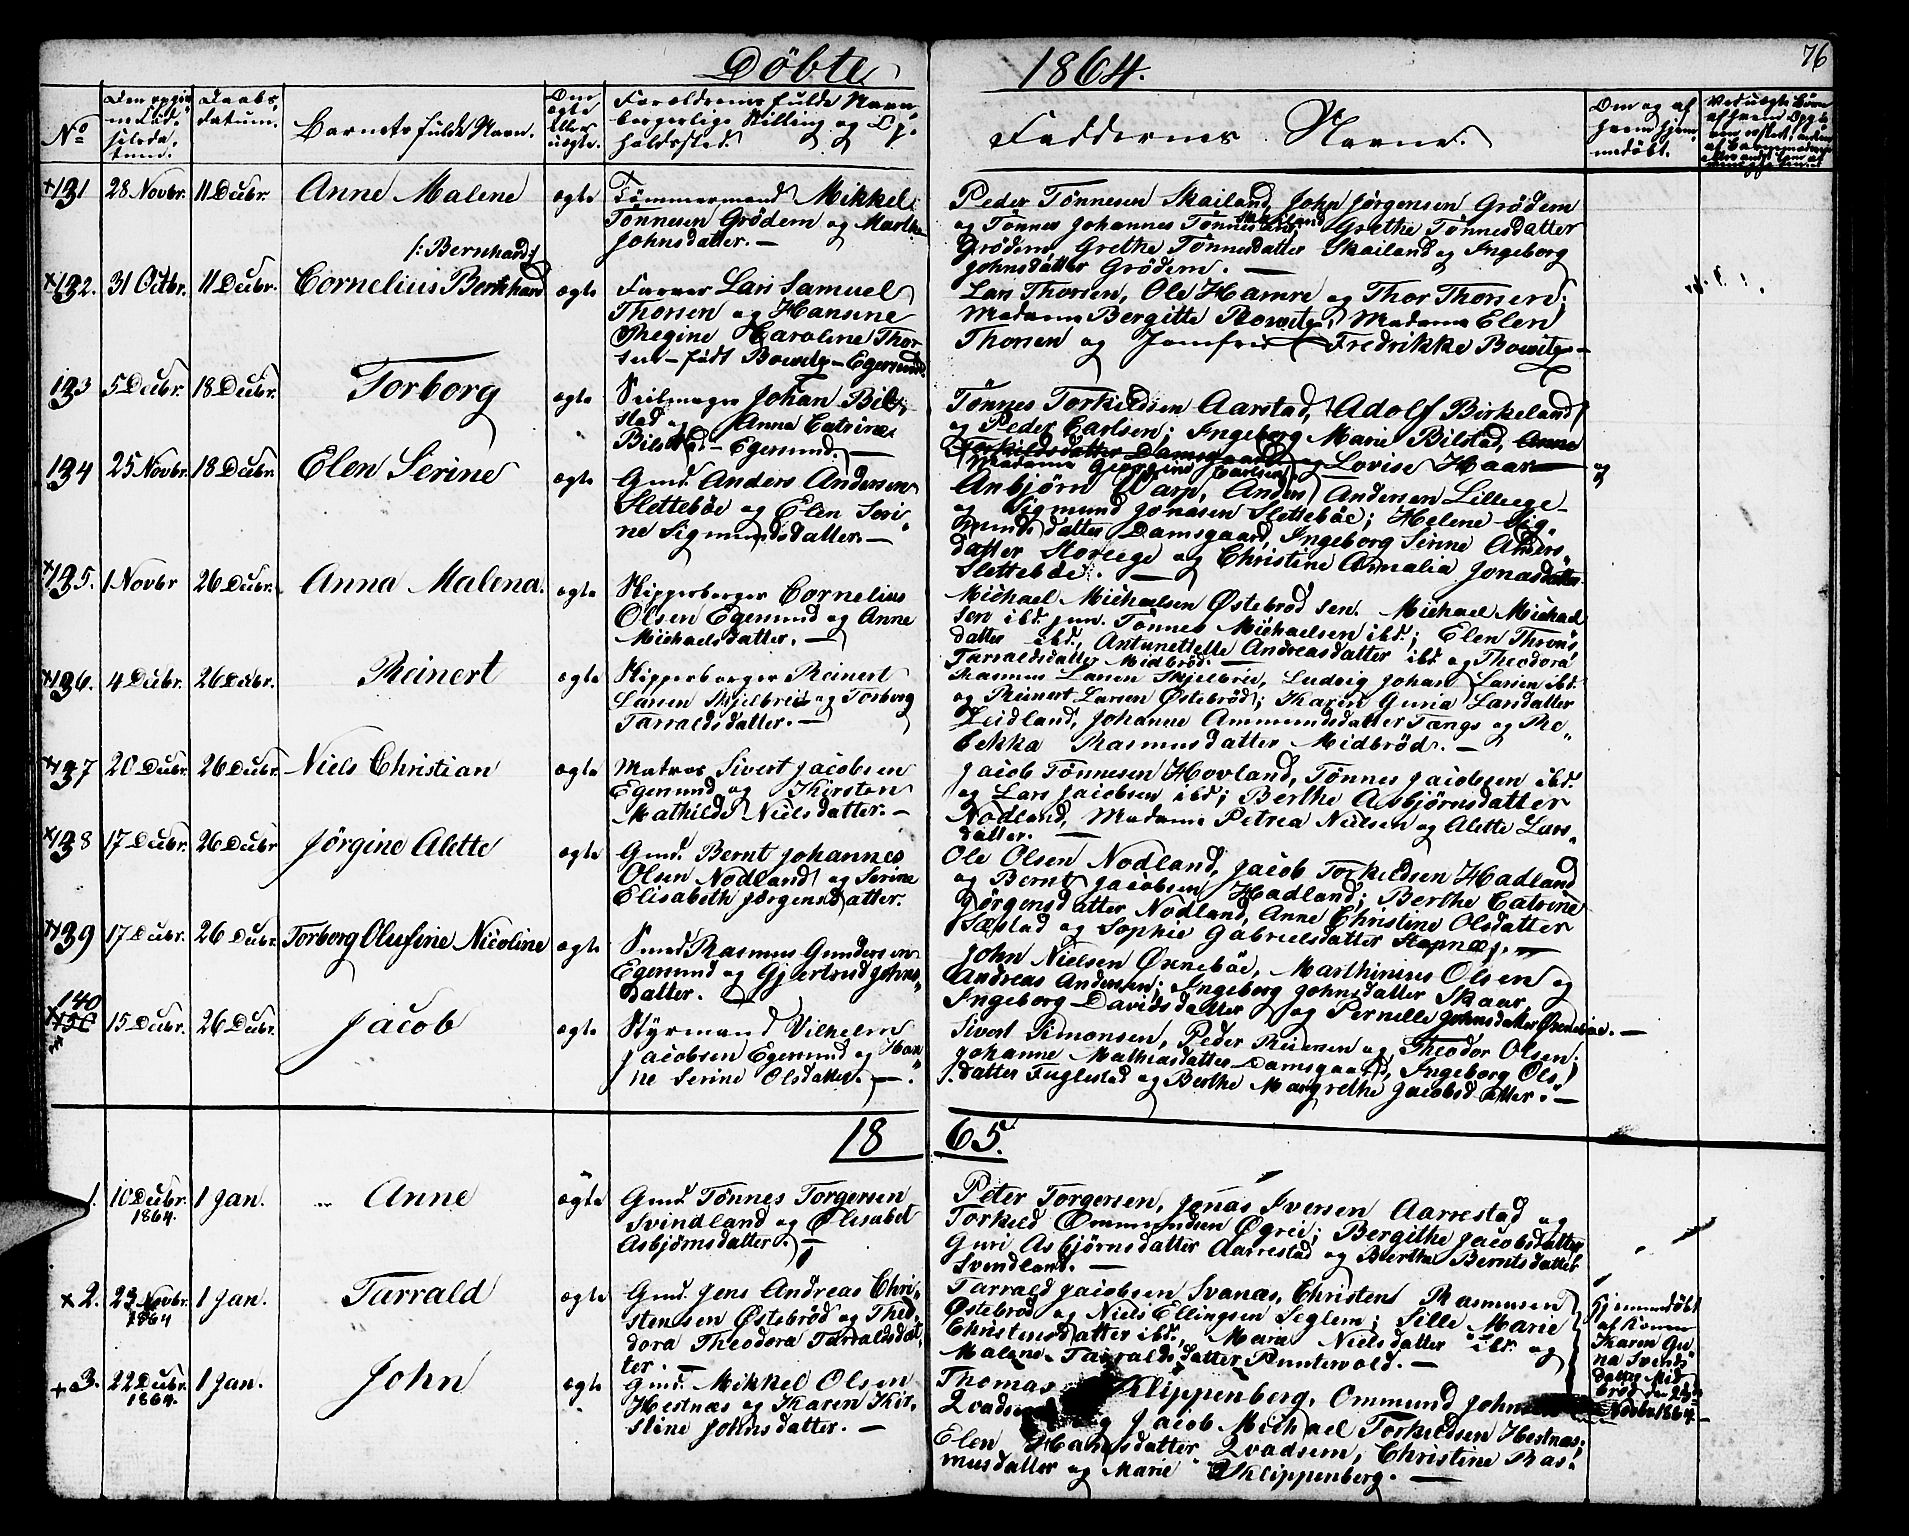 Döbte
1864.
76
No
Barnets fulde Navn.
Forældrenes fulde Navn,
borgerlige Stilling og Op-
holdssted.
Faddernes Navne.
131 28 Novbr. 11 Decbr. Anne Malene ægte
Tömmermand Mikkel
Tönnesen Grödem og Marthe
Johnsdatter. —
Peder Tönnesen Skailand, John Jörgensen Grödem
og Tönnes Johannes Tönnesen Skailand, Grethe Tönnesdatter
Grödem, Grethe Tönnesdatter Skailand og Ingeborg
Johnsdatter Grödem. —
/: Bernhard :/
132. 31 Octbr. 11 Decbr. Cornelius Bernhard ægte
Farver Lars Samuel
Thorsen og Hansine
Regine Haroline Thor
sen — født Bowitz — Egersund.
Lars Thorsen, Ole Hamre og Thor Thorsen;
Madame Bergitte Bowitz, Madame Elen
Thorsen og Jomfru Fredrikke Bowitz —
133 5 Decbr. 18 Decbr. Torborg ægte
Seilmager Johan Bil-
stad og Anna Catrine
Bilstad — Egersund. —
Tönnes Torkildsen Aarstad, Adolf Birkeland
og Peder Carlsen; Ingeborg Marie Bilstad, Anne
Torkildsdatter Damsgaard og Lovise Haar — og
Madame Georgine Carlsen
134 25 Novbr. 18 Decbr. Elen Serine ægte
Gmd. Anders Andersen
Slettebøe og Elen Seri-
ne Sigmundsdatter. —
Anbjörn Warp, Anders Andersen Lilleege
og Sigmund Jonasen Slettebøe; Helene Sig-
mundsdatter Damsgaard, Ingeborg Serine Anders-
datter Storeege og Christine Amalia Jonasdatter
Slettebøe. —
135. 1 Novbr 26 Decbr. Anna Malena. ægte
Skipperborger Cornelius
Olsen Egersund og Anne
Michaelsdatter. —
Michael Michaelsen Østebröd sen. Michael Michael
sen ibd. jun. Tönnes Michaelsen ibd.; Elen Throns-
datter ibd., Antunettelle Andreasdatter ibd. og Theodora
Tarraldsdatter Midbröd. —
136. 4 Decbr. 26 Decbr. Reinert ægte
Skipperborger Reinert
Larsen Skjelbrei og Torborg
Tarraldsdatter. —
Rasmus Larsen Skjelbrei, Ludvig Johan Larsen ibd.
og Reinert Larsen Østebröd; Karen Guria Larsdatter
Leidland, Johanne Ammundsdatter Tængs og Re-
bekka Rasmusdatter Midbröd. —
137 20 Decbr. 26 Decbr. Niels Christian ægte
Matros Sivert Jacobsen
Egersund og Kirsten
Mathilde Nielsdatter. —
Jacob Tönnesen Hovland, Tönnes Jacobsen ibd.
og Lars Jacobsen ibd; Berthe Asbjörnsdatter
Nodland, Madame Petrea Nielsen og Alette Lars-
datter. —
138 17 Decbr. 26 Decbr Jörgine Alette ægte
Gmd. Bernt Johannes
Olsen Nodland og Serine
Elisabeth Jörgensdatter.
Ole Olsen Nodland, Jacob Torkildsen Hadland
og Bernt Jacobsen Hadland; Berthe Catrine
Jörgensdatter Nodland, Anne Christine Olsdatter
Sæstad og Sophie Gabrielsdatter Stapnæs. —
139 17 Decbr. 26 Decbr. Torborg Olufine Nicoline ægte
Smed Rasmus Gundersen
Egersund og Gjertrud Johns-
datter. —
John Nielsen Ørnebøe, Marthinius Olsen og
Andreas Andersen; Ingeborg Johnsdatter Skaar,
Ingeborg Davidsdatter og Pernelle Johnsdatter Ørnebøe. —
140
150 15 Decbr. 26 Decbr. Jacob ægte
Styrmand Vilhelm
Jacobsen Egersund og Han-
ne Serine Olsdatter. —
Sivert Simonsen, Peder Reiersen og Theodor Olsen;
Johanne Mathiasdatter Damsgaard, Ingeborg Ols-
datter Fuglestad og Berthe Margrethe Jacobsdatter. —
1865.
1. 10 Decbr. 1864. 1 Jan. Anne ægte
Gmd. Tönnes Torgersen
Svindland og Elisabet
Asbjörnsdatter. —
Peter Torgersen, Jonas Iversen Aarrestad og
Torkild Ommundsen Øgrei; Bergithe Jacobsdatter,
Guri Asbjörnsdatter Aarrestad og Berthe Berntsdatter
Svindland. —
2. 23 Novbr. 1864 1 Jan. Tarrald ægte
Gmd. Jens Andreas Chri-
stensen Østebröd og Theo-
dora Theodora Tarraldsdat-
ter. —
Tarrald Jacobsen Svanæs, Christen Rasmussen
Østebröd og Niels Ellingsen Seglem; Sille Marie
Christensdatter ibd., Marie Nielsdatter ibd. og
Malene Tarraldsdatter Puntervold. —
Hjemmedöbt
af Konen
Karen Gu-
na Svends-
datter Mid-
bröd den 23de
Novbr 1864. —
3. 22 Decbr. 1864. 1 Jan. John ægte
Gmd. Mikkel Olsen
Hestnæs og Karen Kir-
stine Johnsdatter. —
Thomas Klippenberg, Ommund Johnsen
Qvadsem og Jacob Michael Torkildsen Hestnæs;
Elen Hansdatter Qvadsem, Christine Ras-
musdatter og Marie Klippenberg. —